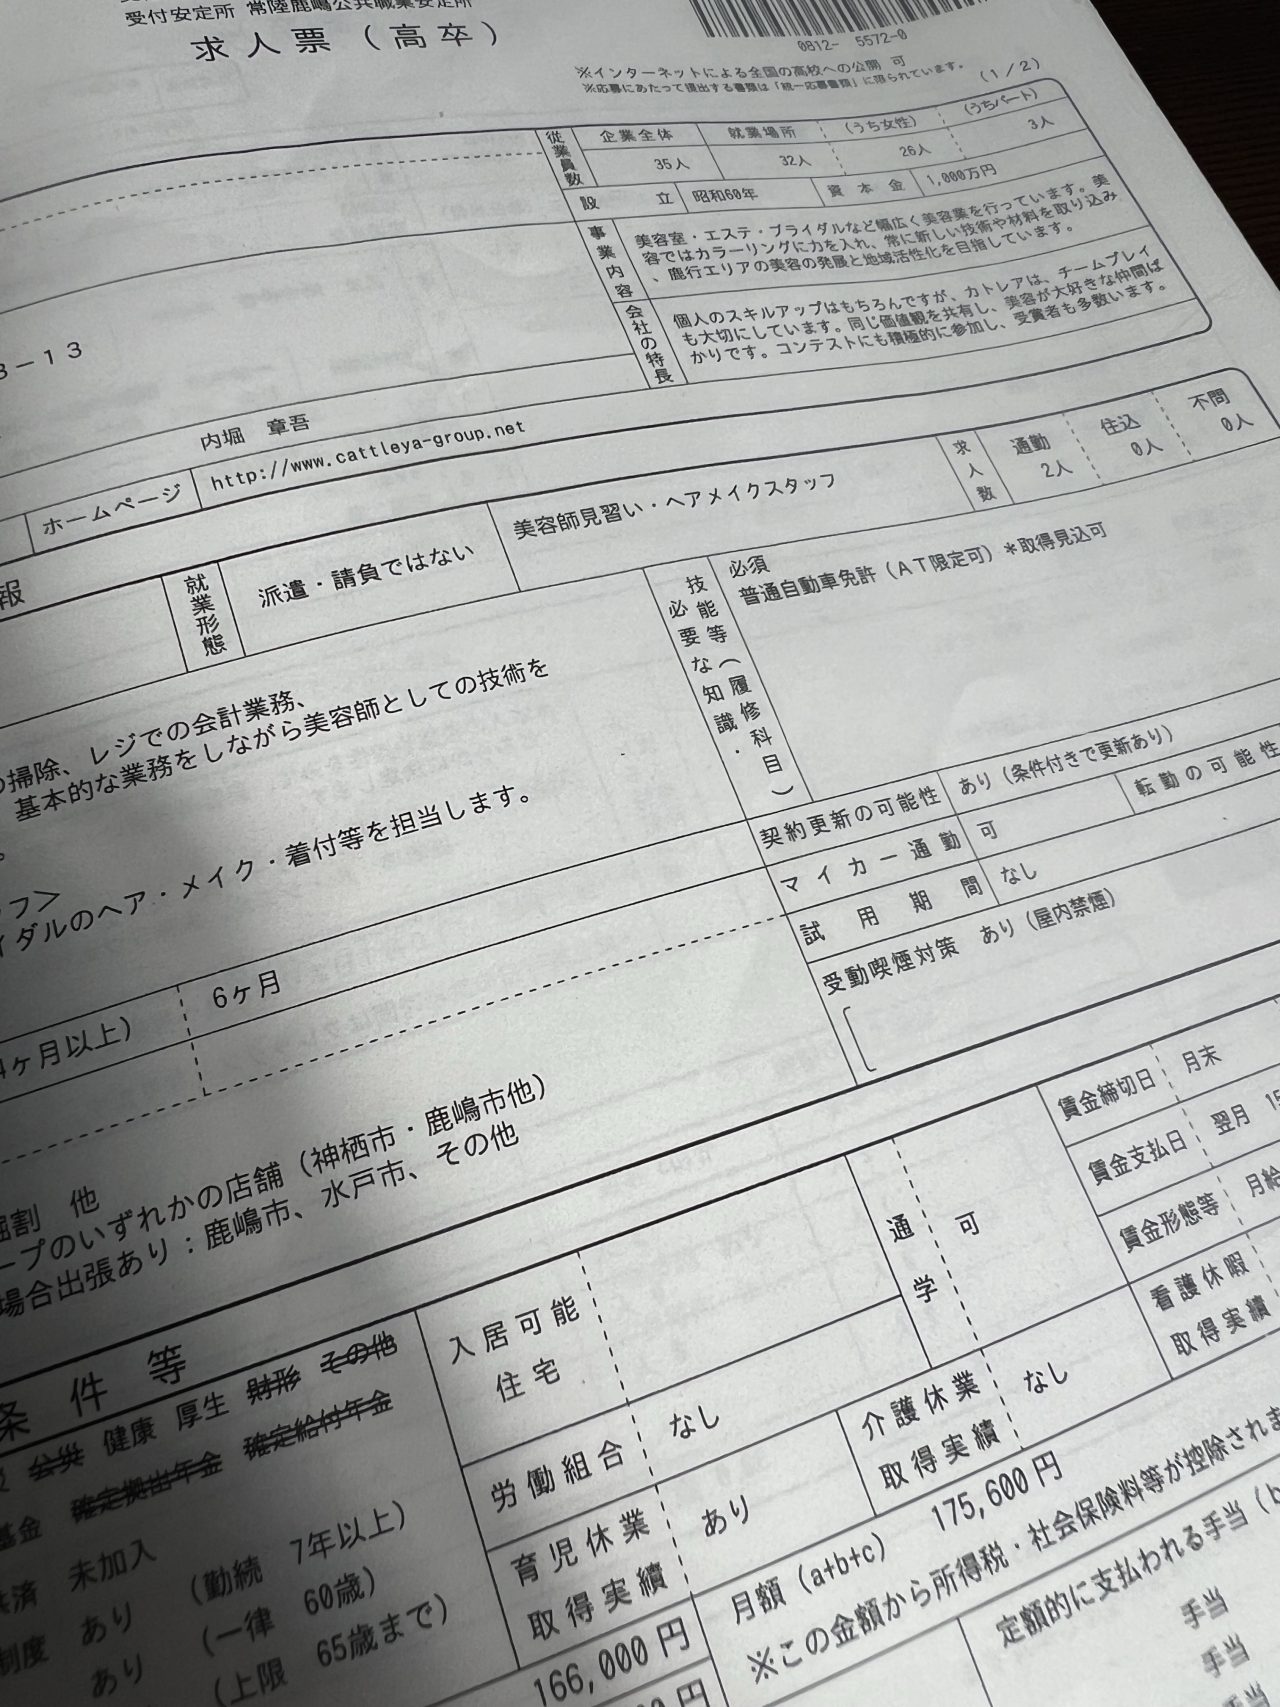 受付安定所 常陸鹿嶋公共職業安定所
求人票(高卒)
0812- 5572-0
※インターネットによる全国の高校への公開 可
※応募にあたって提出する書類は「統一応募書類」に限られています。
(1/2)
従業員数
企業全体 就業場所 (うち女性) (うちパート)
35人 32人 26人 3人
設立 昭和60年 資本金 1,000万円
事業内容
美容室・エステ・ブライダルなど幅広く美容業を行っています。美
容ではカラーリングに力を入れ、常に新しい技術や材料を取り込み
、鹿行エリアの美容の発展と地域活性化を目指しています。
会社の特長
個人のスキルアップはもちろんですが、カトレアは、チームプレイ
も大切にしています。同じ価値観を共有し、美容が大好きな仲間ば
かりです。コンテストにも積極的に参加し、受賞者も多数います。
3-13
内堀 章吾
ホームページ http://www.cattleya-group.net
報
就業形態 派遣・請負ではない
美容師見習い・ヘアメイクスタッフ
求人数
通勤 住込 不問
2人 0人 0人
の掃除、レジでの会計業務、
基本的な業務をしながら美容師としての技術を
。
ッフ>
イダルのヘア・メイク・着付等を担当します。
必要な知識・技能等(履修科目)
必須
普通自動車免許(AT限定可)*取得見込可
契約更新の可能性 あり(条件付きで更新あり)
マイカー通勤 可 転勤の可能性
試用期間 なし
受動喫煙対策 あり(屋内禁煙)
4ヶ月以上) 6ヶ月
堀割 他
ープのいずれかの店舗(神栖市・鹿嶋市他)
場合出張あり:鹿嶋市、水戸市、その他
条件等
公災 健康 厚生 財形 その他
基金 確定拠出年金 確定給付年金
共済 未加入
制度 あり (勤続 7年以上)
あり (一律 60歳)
(上限 65歳まで)
入居可能住宅
通学 可
労働組合 なし
育児休業取得実績 あり
介護休業取得実績 なし
賃金締切日 月末
賃金支払日 翌月 15
賃金形態等 月給
看護休暇取得実績
166,000円
月額(a+b+c) 175,600円
※この金額から所得税・社会保険料等が控除されま
定額的に支払われる手当(b
手当
手当
手当